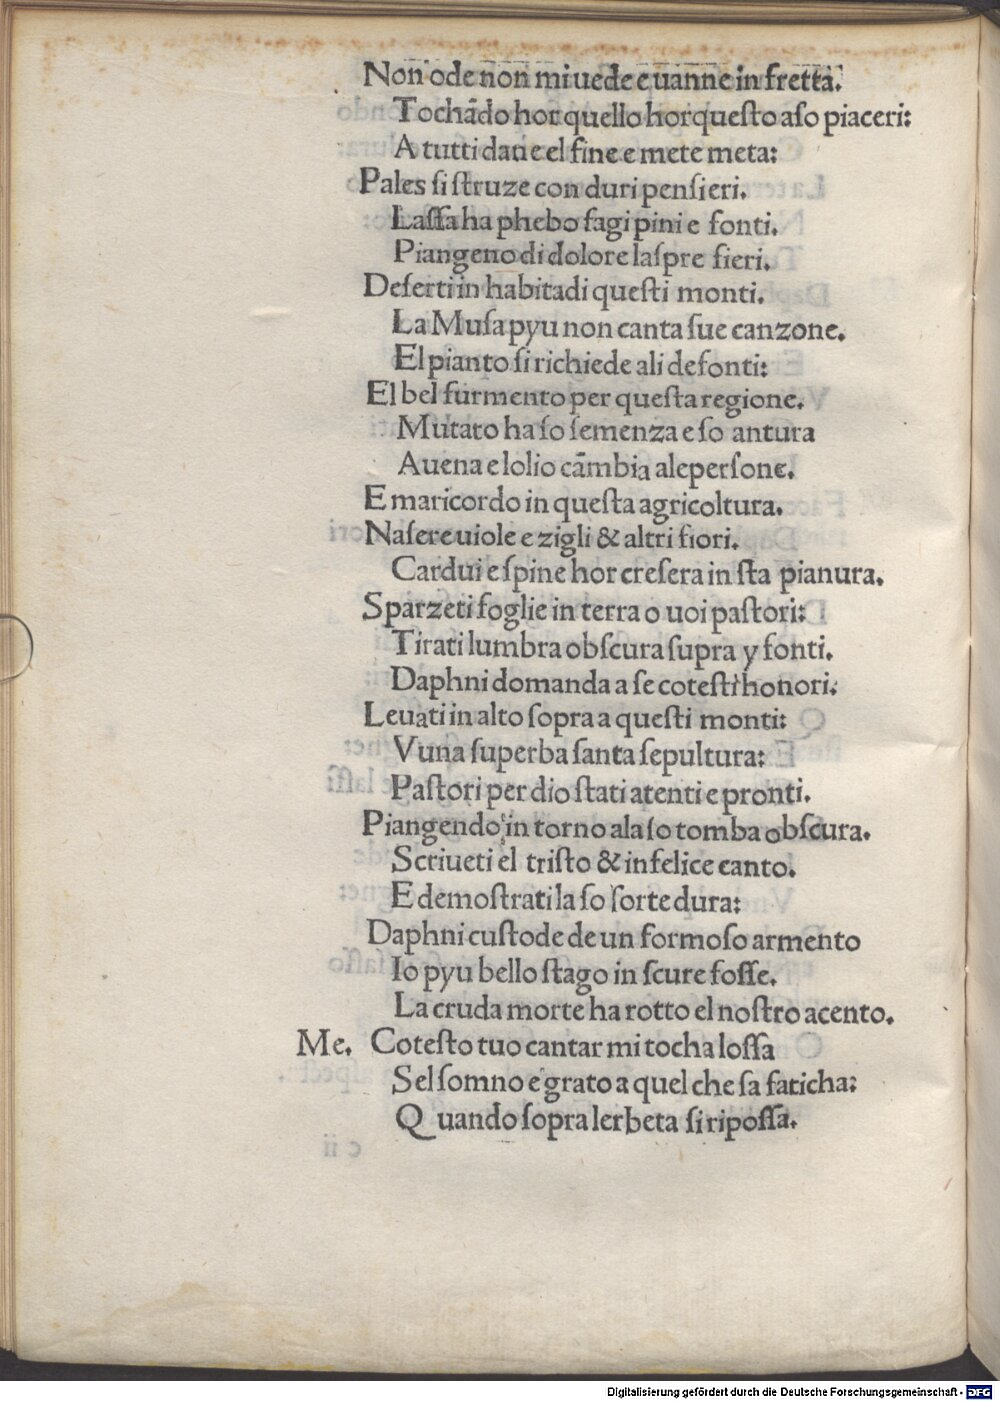 Non ode non mi uede e uanne in fretta.
Tochãdo hor quello hor queſto aſo piaceri:
A tutti daue el fine e mete meta:
Pales ſi ſtruze con duri penſieri.
Laſſa ha phebo fagi pini e fonti.
Piangeno di dolore laſpre fieri.
Deſerti in habitadi queſti monti.
La Muſa pyu non canta ſue canzone.
El pianto ſi richiede ali defonti:
El bel furmento per queſta regione.
Mutato ha ſo ſemenza e ſo antura
Auena e lolio cãmbia aleperſone.
E maricordo in queſta agricoltura.
Naſere uiole e zigli & altri fiori.
Cardui e ſpine hor creſera in ſta pianura.
Sparzeti foglie in terra o uoi paſtori:
Tirati lumbra obſcura ſupra y fonti.
Daphni domanda a ſe coteſti honori:
Leuati in alto ſopra a queſti monti:
Vuna ſuperba ſanta ſepultura:
Paſtori per dio ſtati atenti e pronti.
Piangendo in torno ala ſo tomba obſcura.
Scriueti el triſto & infelice canto.
E demoſtrati la ſo ſorte dura:
Daphni cuſtode de un formoſo armento
Io pyu bello ſtago in ſcure foſſe.
La cruda morte ha rotto el noſtro acento.
Me. Coteſto tuo cantar mi tocha loſſa
Sel ſomno e grato a quel che ſa faticha:
Quando ſopra lerbeta ſi ripoſſa.
Digitalisierung gefördert durch die Deutsche Forschungsgemeinschaft - DFG